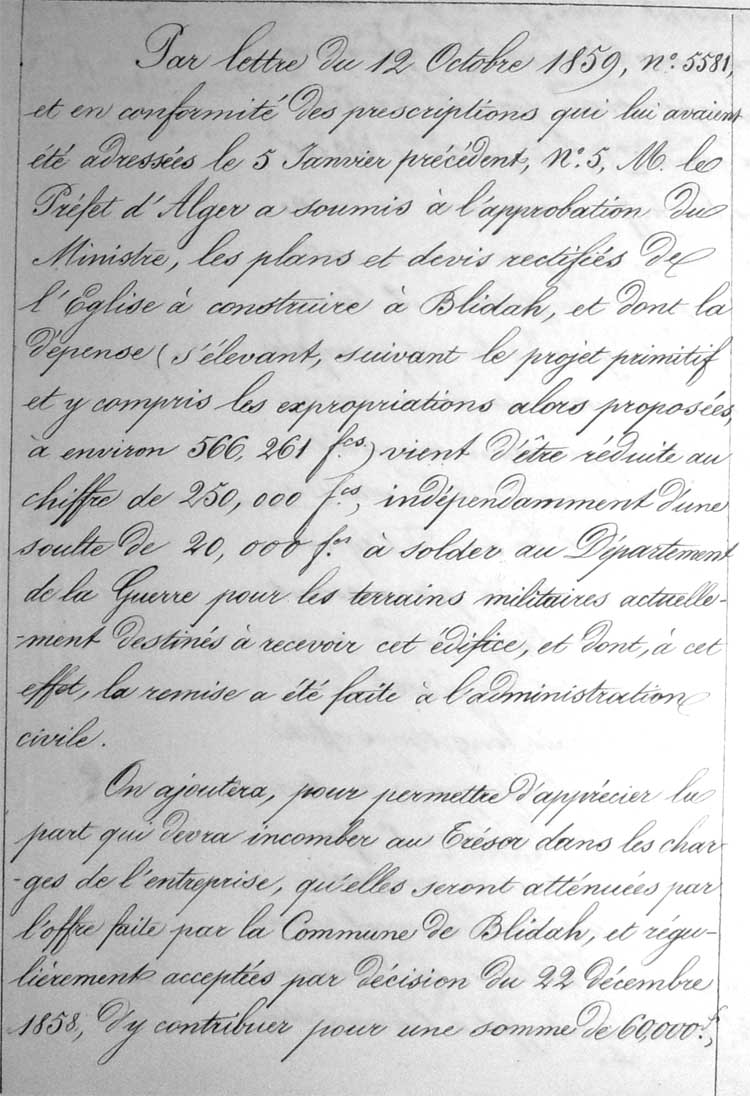 Par lettre du 12 Octobre 1859, n.° 5581,
et en conformité des prescriptions qui lui avaient
été adressées le 5 Janvier précédent, N.° 5, M. le
Préfet d'Alger a soumis à l'approbation du
Ministre, les plans et devis rectifiés de
l'Eglise à construire à Blidah, et dont la
dépense (s'élevant, suivant le projet primitif
et y compris les expropriations alors proposées,
à environ 566,261 f.cs) vient d'être réduite au
chiffre de 250,000 f.cs, indépendamment d'une
soulte de 20,000 f.cs à solder au Département
de la Guerre pour les terrains militaires actuelle-
-ment destinés à recevoir cet édifice, et dont, à cet
effet, la remise a été faite à l'administration
civile.
On ajoutera, pour permettre d'apprécier la
part qui devra incomber au Trésor dans les char-
-ges de l'entreprise, qu'elles seront atténuées par
l'offre faite par la Commune de Blidah, et régu-
lièrement acceptées par décision du 22 décembre
1858, d'y contribuer pour une somme de 60,000 f.,